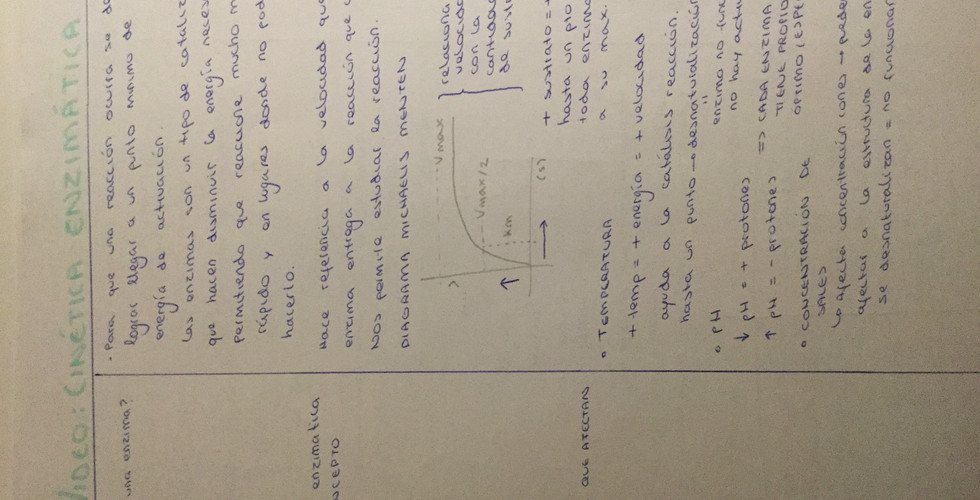 VIDEO: CINÉTICA ENZIMÁTICA
una enzima?
· Para que una reacción ocurra se de
lograr llegar a un punto mínimo de
energía de activación.
Las enzimas son un tipo de cataliz
que hacen disminuir la energía neces
permitiendo que reaccione mucho m
rápido y en lugares donde no pod
hacerlo.
enzimatica
NCEPTO
Hace referencia a la velocidad que
enzima entrega a la reacción que c
Nos permite estudiar la reacción.
DIAGRAMA MICHAELIS MENTEN
V
Vmax
Vmax/2
km
[s]
relación
velocida
con la
cantidad
de sustr
+ sustrato = +
hasta un pto
toda enzima
a su max.
QUE AFECTAN
• TEMPERATURA
+ temp = + energía = + velocidad
ayuda a la catálisis reacción.
hasta un punto → desnaturalización
"
enzima no func
• PH
no hay activ
↓ pH = + protones
=> CADA ENZIMA
↑ pH = - protones
TIENE PROPIO
ÓPTIMO (ESPE
• CONCENTRACIÓN DE
SALES
↳ afecta concentración iones → puede
afectar a la estrutura de la en
se desnaturalizan = no funcionan